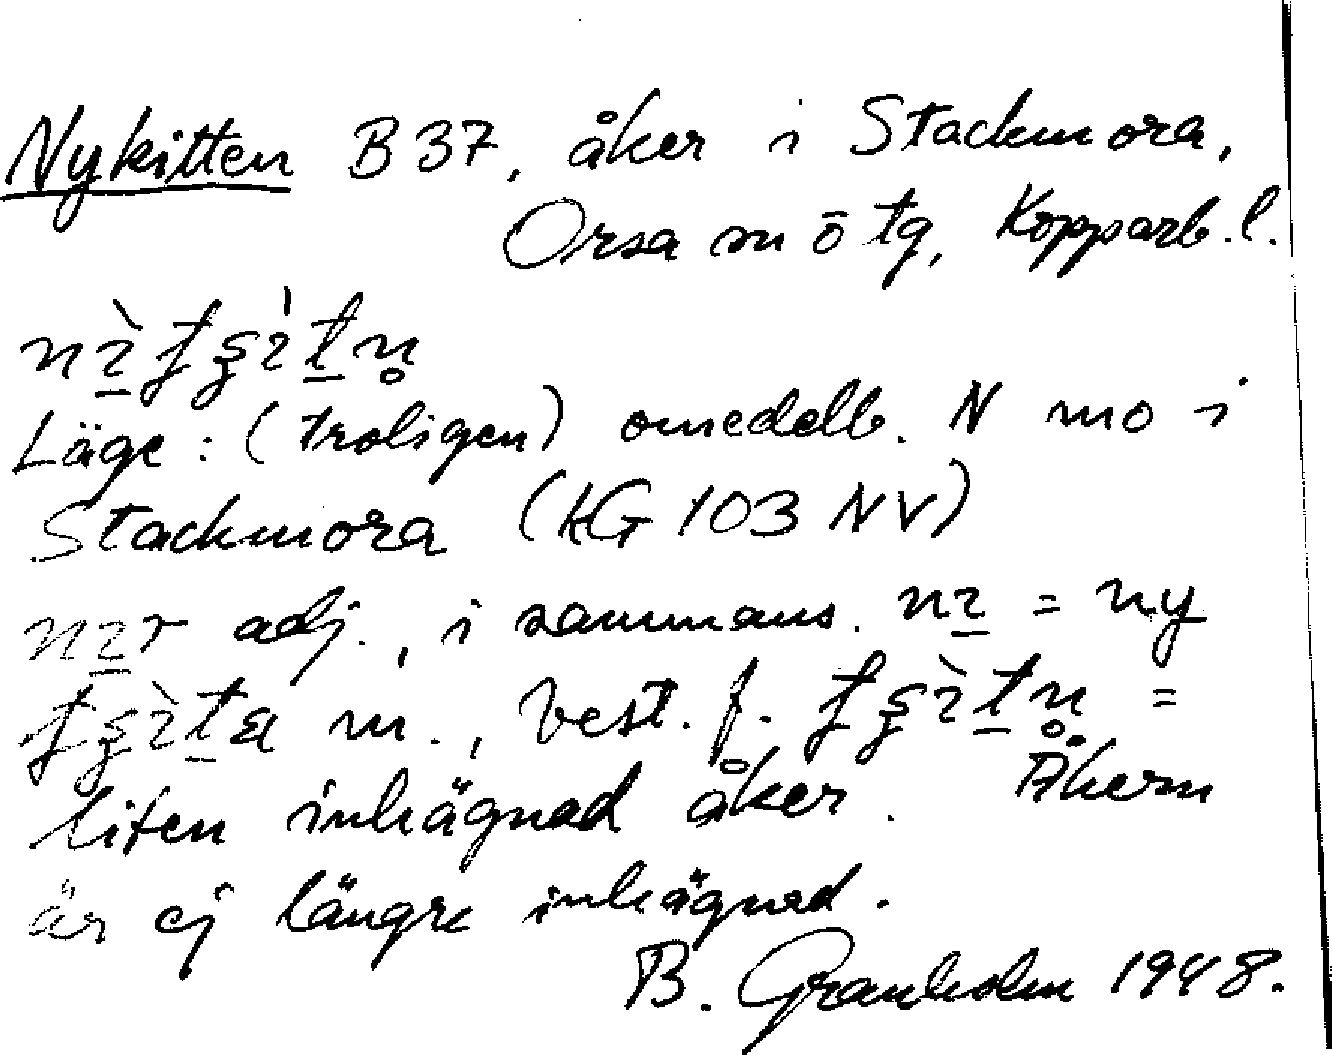 Nykitten B 37, åker i Stackmora,
Orsa sn ö tg, Kopparb. l.
Läge: (troligen) omedelb. N mo i
Stackmora (KG 103 NV)
adj., i sammans. = ny
m., best. f. =
liten inhägnad åker. Åkern
är ej längre inhägnad.
B. Granholm 1948.